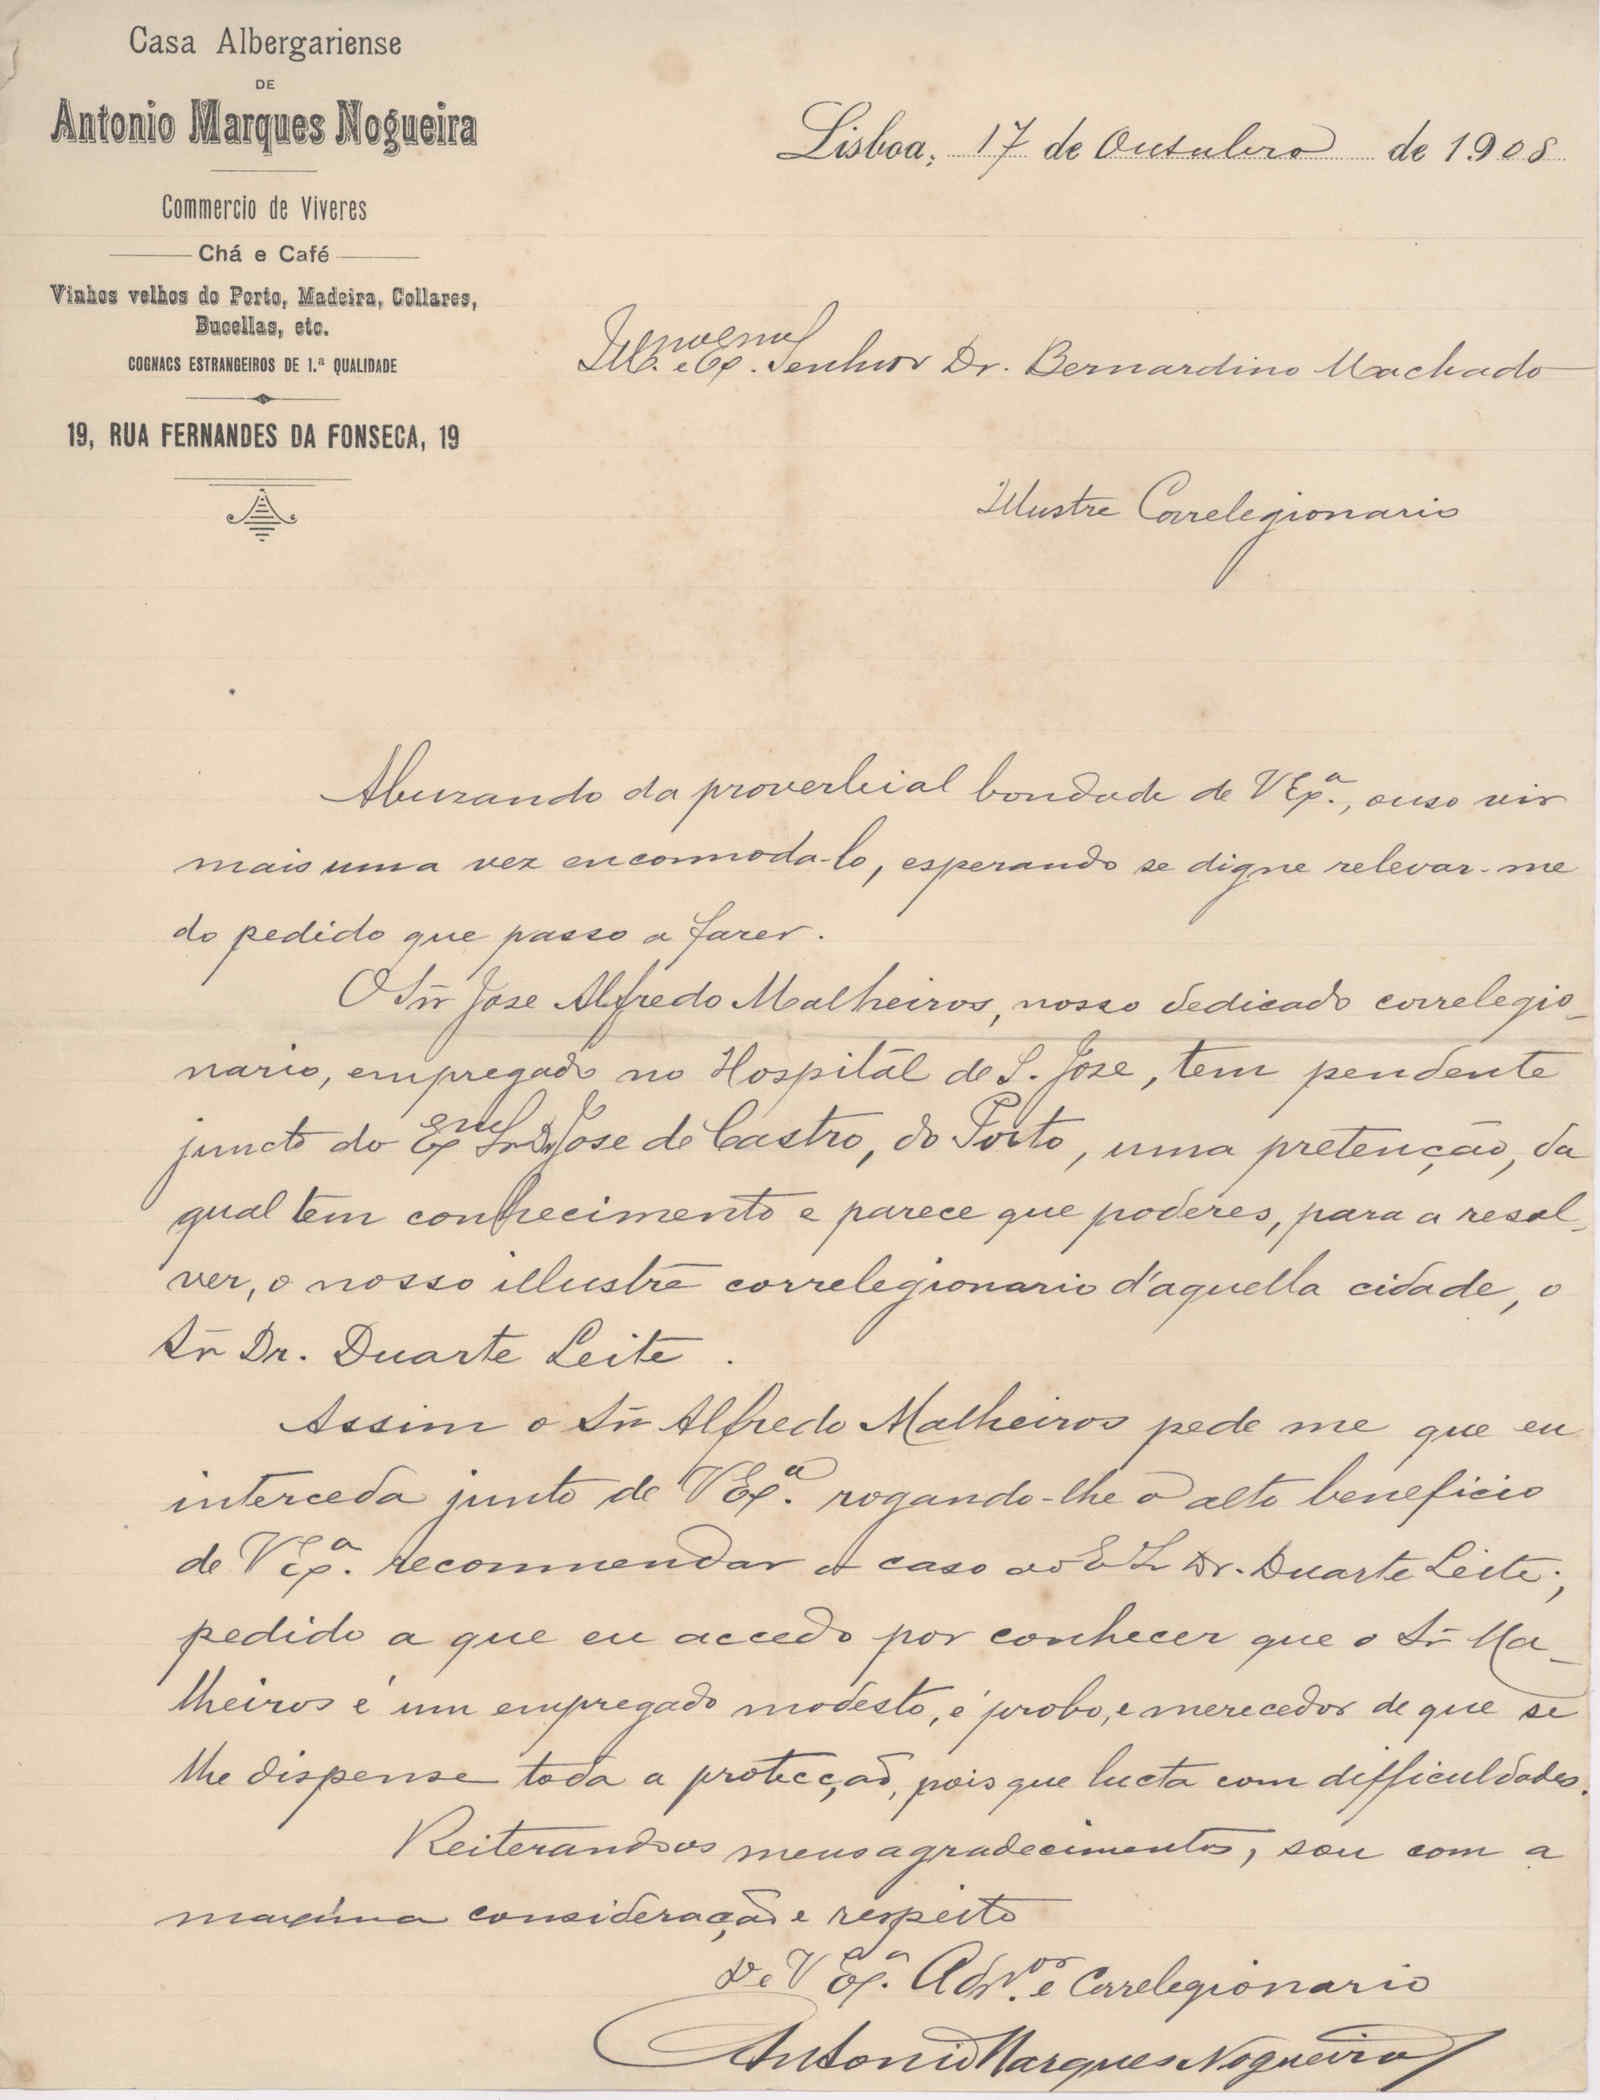 Casa Albergariense
DE
Antonio Marques Nogueira
Commercio de Viveres
Chá e Café
Vinhos velhos do Porto, Madeira, Collares,
Bucellas, etc.
COGNACS ESTRANGEIROS DE 1.ª QUALIDADE
19, RUA FERNANDES DA FONSECA, 19
Lisboa, 17 de Outubro de 1908
Ill.mo e Ex.mo Senhor Dr. Bernardino Machado
Illustre Correlegionario
Abuzando da proverbial bondade de V Ex.ª, ouso vir
mais uma vez encommoda-lo, esperando se digne relevar-me
do pedido que passo a fazer.
O Snr Jose Alfredo Malheiros, nosso dedicado correlegio-
nario, empregado no Hospital de S. Jose, tem pendente
juncto do Ex.mo Sr. Dr. Jose de Castro, do Porto, uma pretenção, da
qual tem conhecimento e parece que poderes, para a resol-
ver, o nosso illustre correlegionario d'aquella cidade, o
Snr Dr. Duarte Leite.
Assim o Snr Alfredo Malheiros pede me que eu
interceda junto de V Ex.ª rogando-lhe o alto beneficio
de V Ex.ª recommendar o caso ao Ex Sr Dr. Duarte Leite;
pedido a que eu accedo por conhecer que o Sr Ma-
lheiros é um empregado modesto, é probo, e merecedor de que se
lhe dispense toda a protecção, pois que lucta com difficuldades.
Reiterando os meus agradecimentos, sou com a
maxima consideração e respeito
De V Ex.ª Adm.or e Correlegionario
Antonio Marques Nogueira